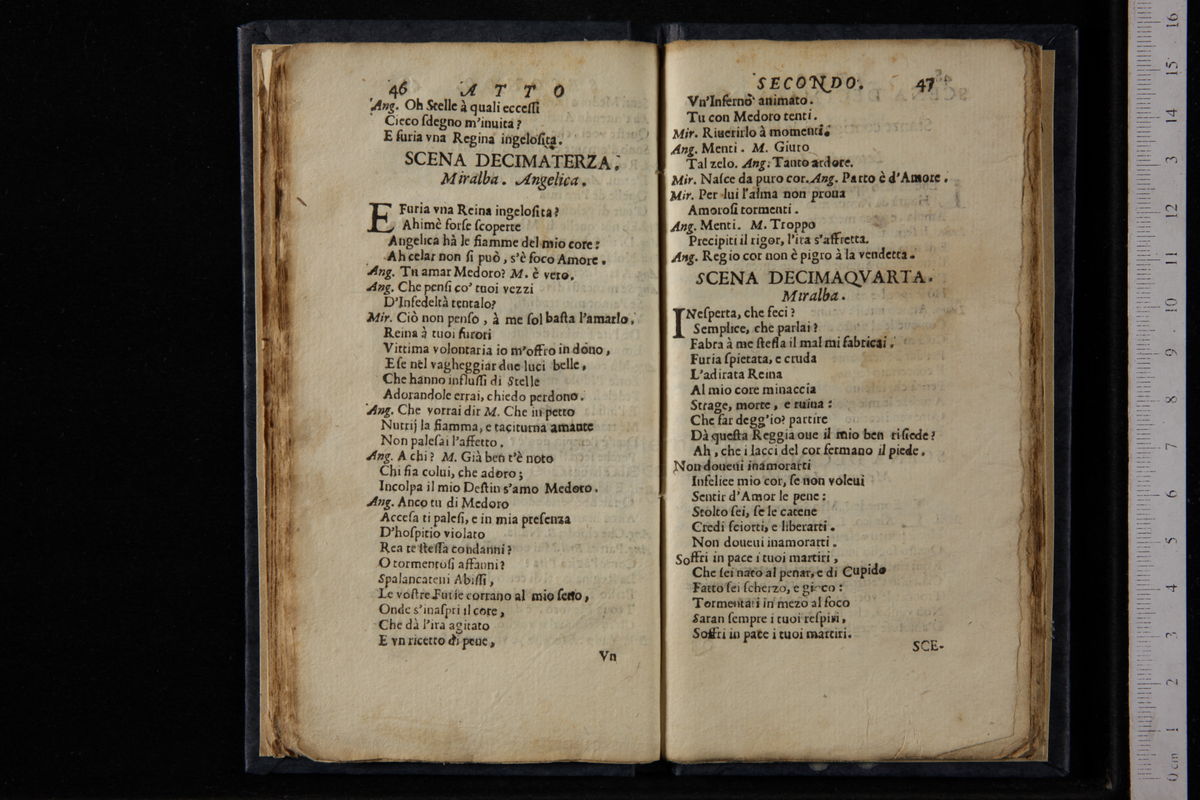 46 ATTO
Ang. Oh Stelle à quali eccessi
Cieco sdegno m'inuita?
E furia vna Regina ingelosita.
SCENA DECIMATERZA.
Miralba. Angelica.
E Furia vna Reina ingelosita?
Ahimè forse scoperte
Angelica hà le fiamme del mio core:
Ah celar non si può, s'è foco Amore.
Ang. Tu amar Medoro? M. è vero.
Ang. Che pensi co' tuoi vezzi
D'Infedeltà tentalo?
Mir. Ciò non penso, à me sol basta l'amarlo,
Reina à tuoi furori
Vittima volontaria io m'offro in dono,
E se nèl vagheggiar due luci belle,
Che hanno influssi di Stelle
Adorandole errai, chiedo perdono.
Ang. Che vorrai dir M. Che in petto
Nutrij la fiamma, e taciturna amante
Non palesai l'affetto.
Ang. A chi? M. Già ben t'è noto
Chi sia colui, che adoro;
Incolpa il mio Destin s'amo Medoro.
Ang. Anco tu di Medoro
Accesa ti palesi, e in mia presenza
D'hospitio violato
Rea te stessa condanni?
O tormentosi affanni?
Spalancateui Abissi,
Le vostre Furie corrano al mio seno,
Onde s'inaspri il core,
Che dà l'ira agitato
E vn ricetto di pene,
Vn
SECONDO. 47
Vn'Inferno animato.
Tu con Medoro tenti.
Mir. Riuerirlo à momenti.
Ang. Menti. M. Giuro
Tal zelo. Ang. Tanto ardore.
Mir. Nasce da puro cor. Ang. Parto è d'Amore.
Mir. Per lui l'alma non proua
Amorosi tormenti.
Ang. Menti. M. Troppo
Precipiti il rigor, l'ira s'affretta.
Ang. Regio cor non è pigro à la vendetta.
SCENA DECIMAQVARTA.
Miralba.
INesperta, che feci?
Semplice, che parlai?
Fabra à me stessa il mal mi fabricai.
Furia spietata, e cruda
L'adirata Reina
Al mio core minaccia
Strage, morte, e ruina:
Che far degg'io? partire
Dà questa Reggia oue il mio ben risiede?
Ah, che i lacci del cor fermano il piede.
Non doueui inamorarti
Infelice mio cor, se non voleui
Sentir d'Amor le pene:
Stolto sei, se le catene
Credi sciorti, e liberarti.
Non doueui inamorarti.
Soffri in pace i tuoi martiri,
Che sei nato al penar, e di Cupido
Fatto sei scherzo, e gioco:
Tormentati in mezo al foco
Saran sempre i tuoi respiri,
Soffri in pace i tuoi martiri.
SCE-